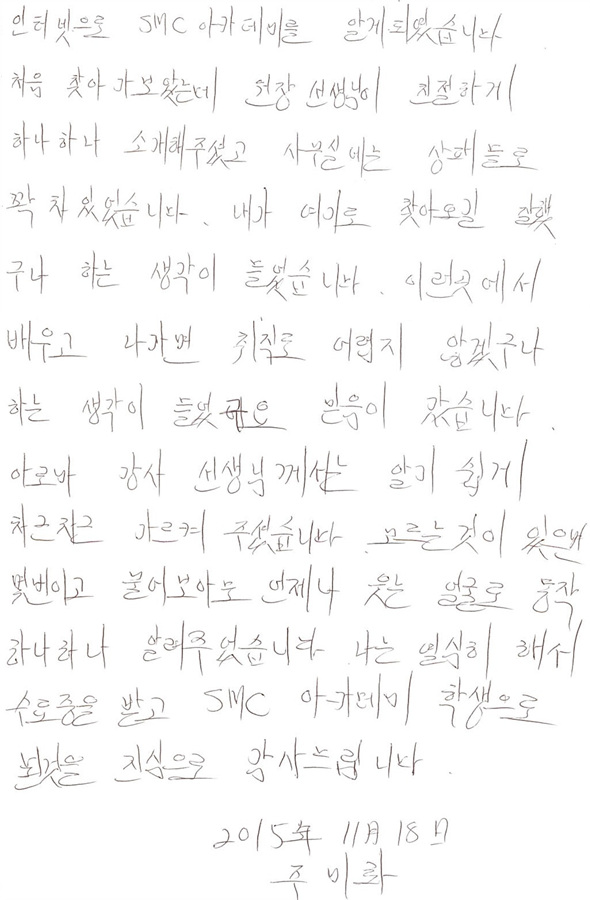 인터넷으로 SMC 아카데미를 알게되였습니다
처음 찾아 가보왔는데 원장 선생님이 친절하게
하나하나 소개해주셨고 사무실에는 상패들로
꽉 차 있었습니다. 내가 여기로 찾아오길 잘했
구나 하는 생각이 들었습니다. 이런곳에서
배우고 나가면 취직도 어렵지 않겠구나
하는 생각이 들었구요 믿음이 갔습니다.
아로마 강사 선생님께서는 알기 쉽게
차근차근 가르켜 주셨습니다. 모르는것이 있으면
몇번이고 물어보아도 언제나 웃는 얼굴로 동작
하나하나 알려주었습니다. 나는 열심히 해서
수료증을 받고 SMC 아카데미 학생으로
된것을 진심으로 감사드립니다.
2015年 11月 18日
주 미 화